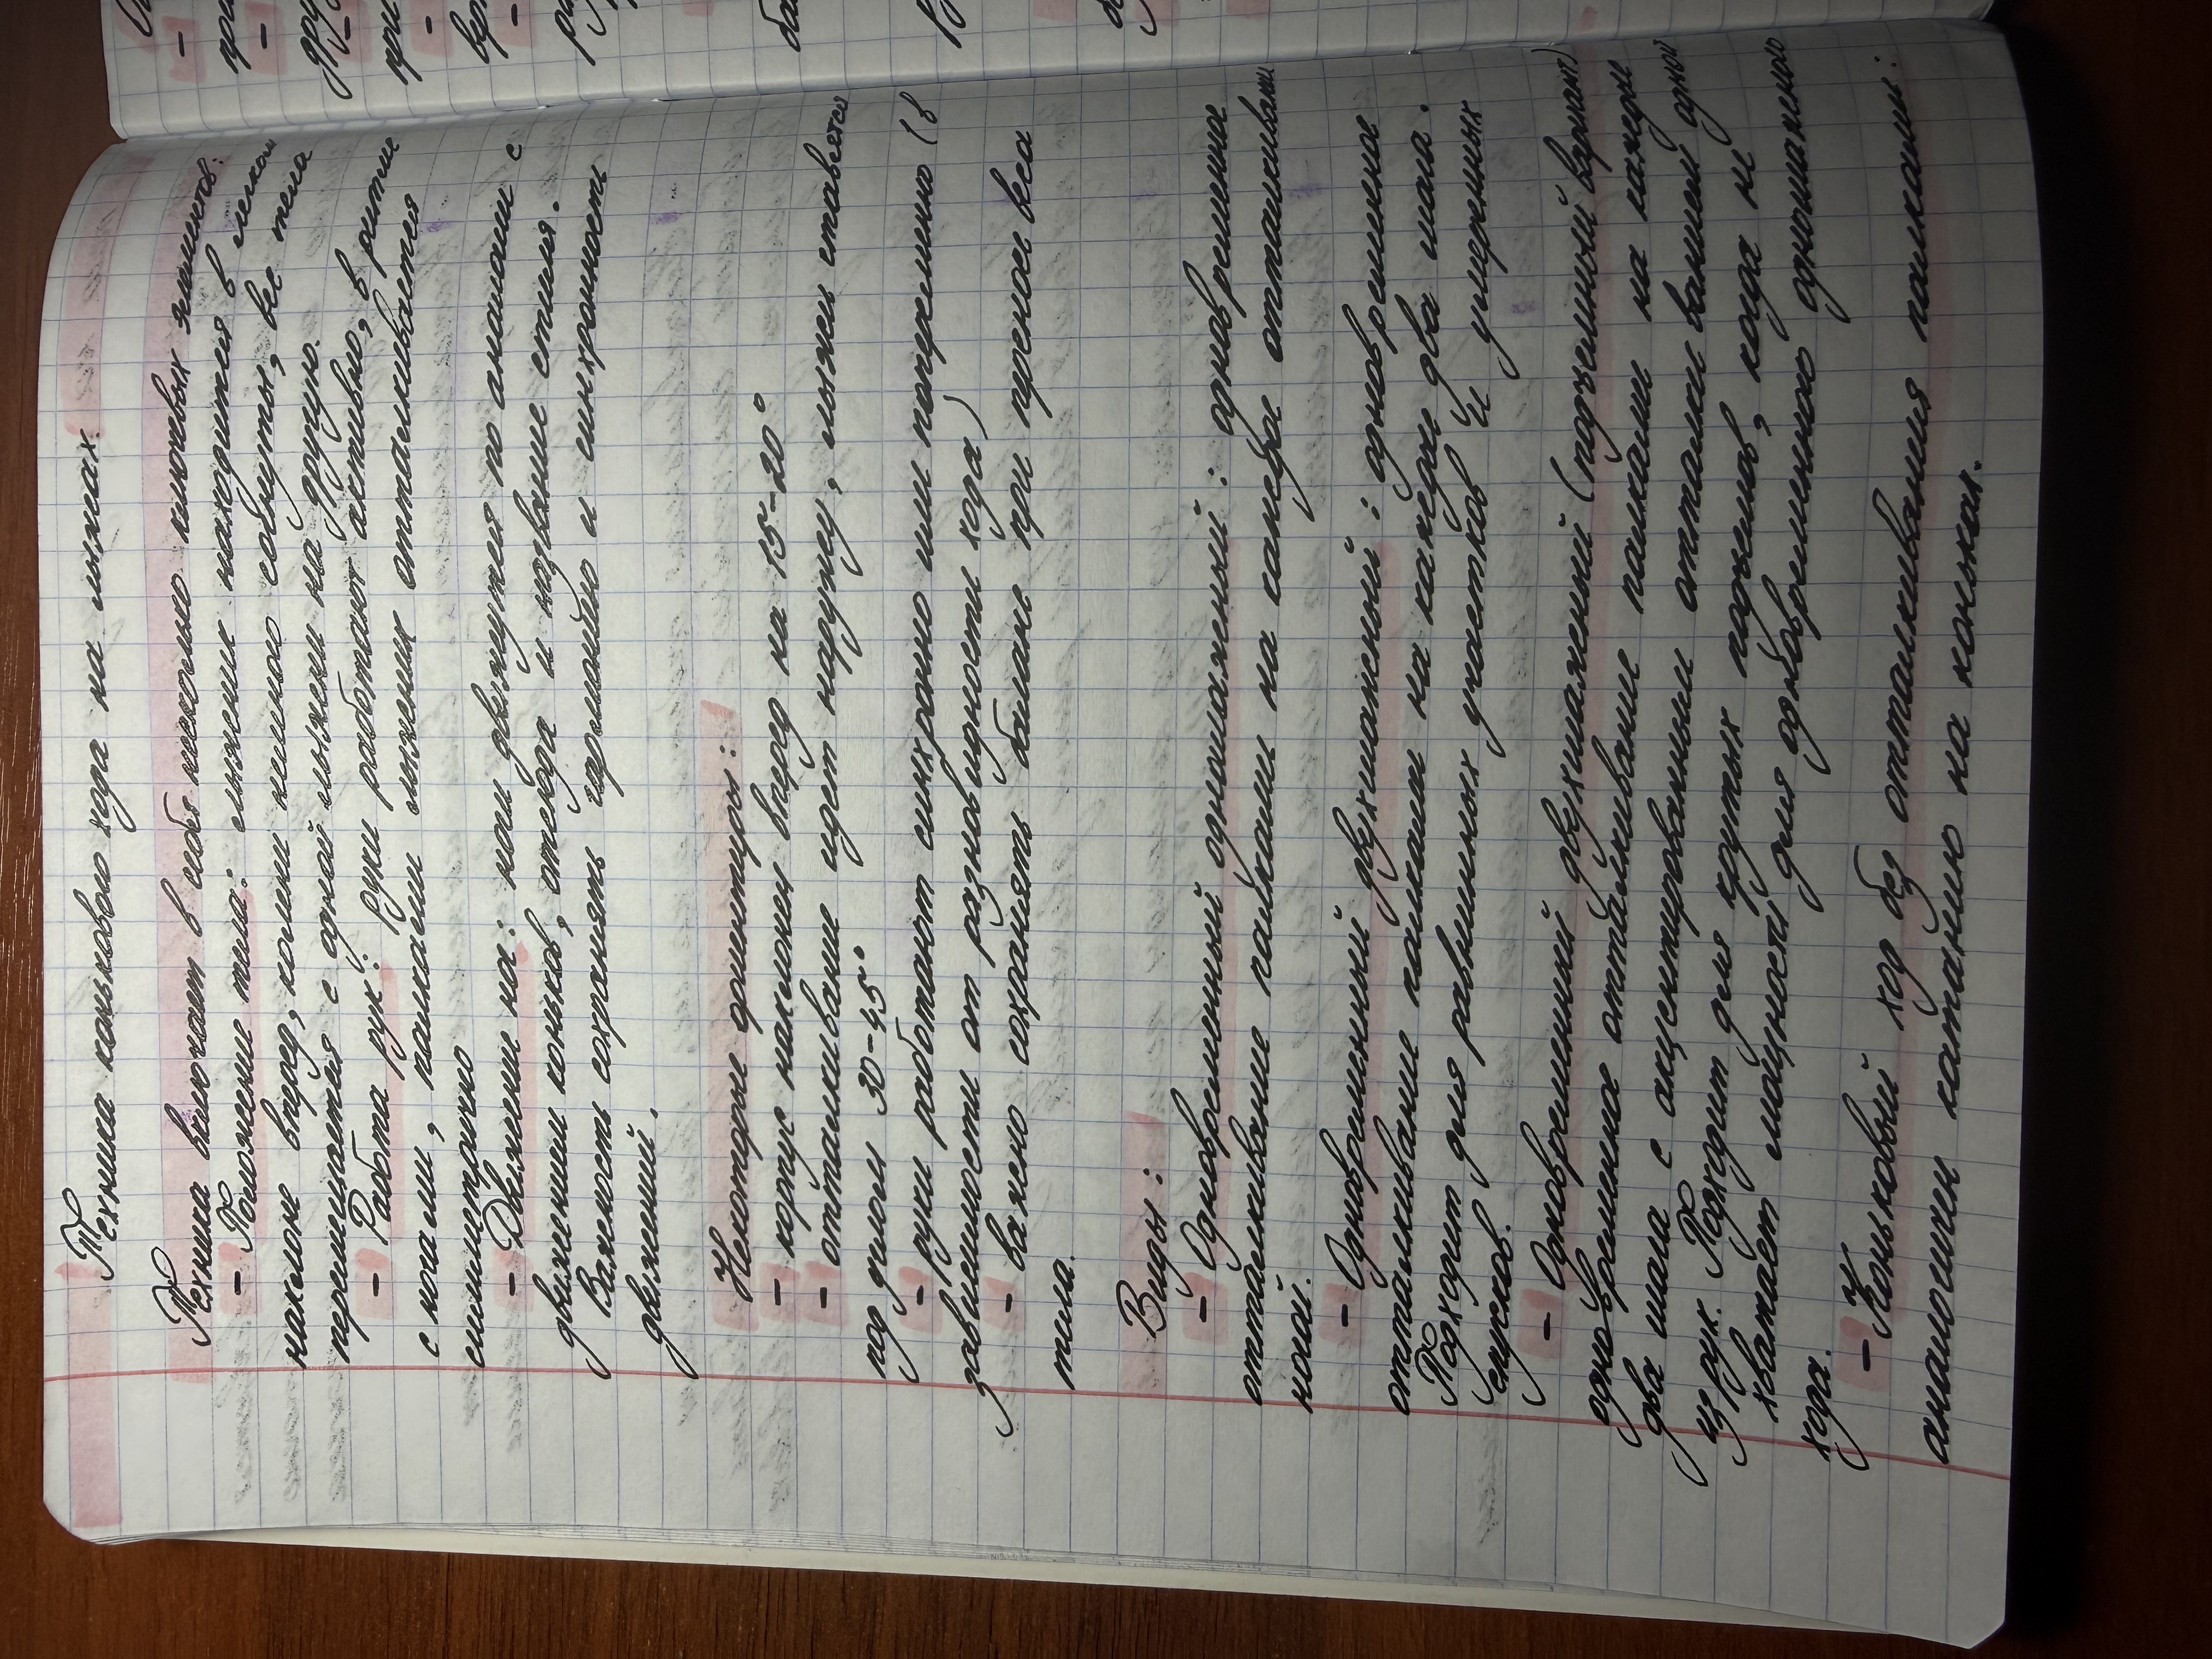 Техника конькового хода на лыжах.
Техника включает в себя несколько ключевых элементов:
– Положение тела: лыжник находится в легком
наклоне вперед, колени немного согнуты, вес тела
перемещается с одной лыжи на другую.
– Работа рук: руки работают активно, в ритме
с ногами, палками лыжник отталкивается
симметрично
– Движение ног: ноги движутся по аналогии с
движением коньков, отсюда и название стиля.
Важность сохранять гармонию и синхронность
движений.
Некоторые ориентиры:
– корпус наклонен вперед на 15-20°
– отталкивание идет наружу, лыжи ставятся
под углом 30-45°
– руки работают синхронно или попеременно (в
зависимости от разновидности хода)
– важно сохранять баланс при переносе веса
тела.
Виды:
– Одновременный одношажный: одновременное
отталкивание палками на каждое отталкивание
ногой.
– Одновременный двухшажный: одновременное
отталкивание палками на каждые два шага.
Подходит для равнинных участков и умеренных
спусков.
– Одновременный двухшажный (подъемный вариант)
одновременное отталкивание палками на каждые
два шага с акцентированными отталкиваний одной
из рук. Подходит для крутых подъемов, когда не
хватает мощности для одновременного одношажного
хода.
– Коньковый ход без отталкивания палками:
аналогичен катанию на коньках.